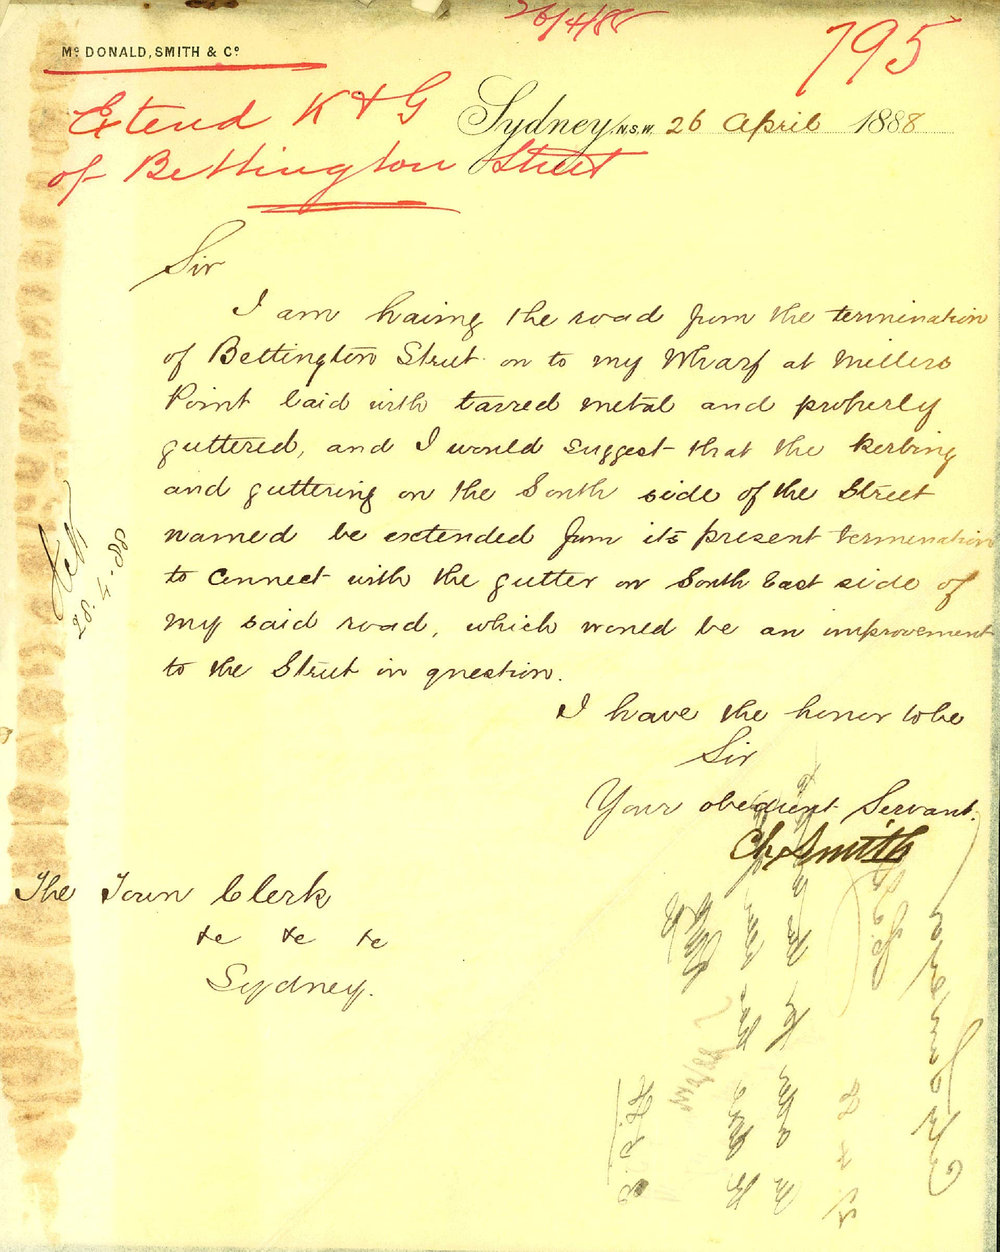 26/4/88
795
Mc DONALD, SMITH & Co
Extend K & G
of Bettington Street
Sydney, N.S.W. 26 April 1888
Sir
I am having the road from the termination
of Bettington Street on to my Wharf at Millers
Point laid with tarred metal and properly
guttered, and I would suggest that the kerbing
and guttering on the South side of the Street
named be extended from its present termination
to connect with the gutter on South East side of
my said road, which would be an improvement
to the Street in question.
I have the honor to be
Sir
Your obedient Servant.
Ch. Smith
The Town Clerk
&c &c &c
Sydney.
28.4.88